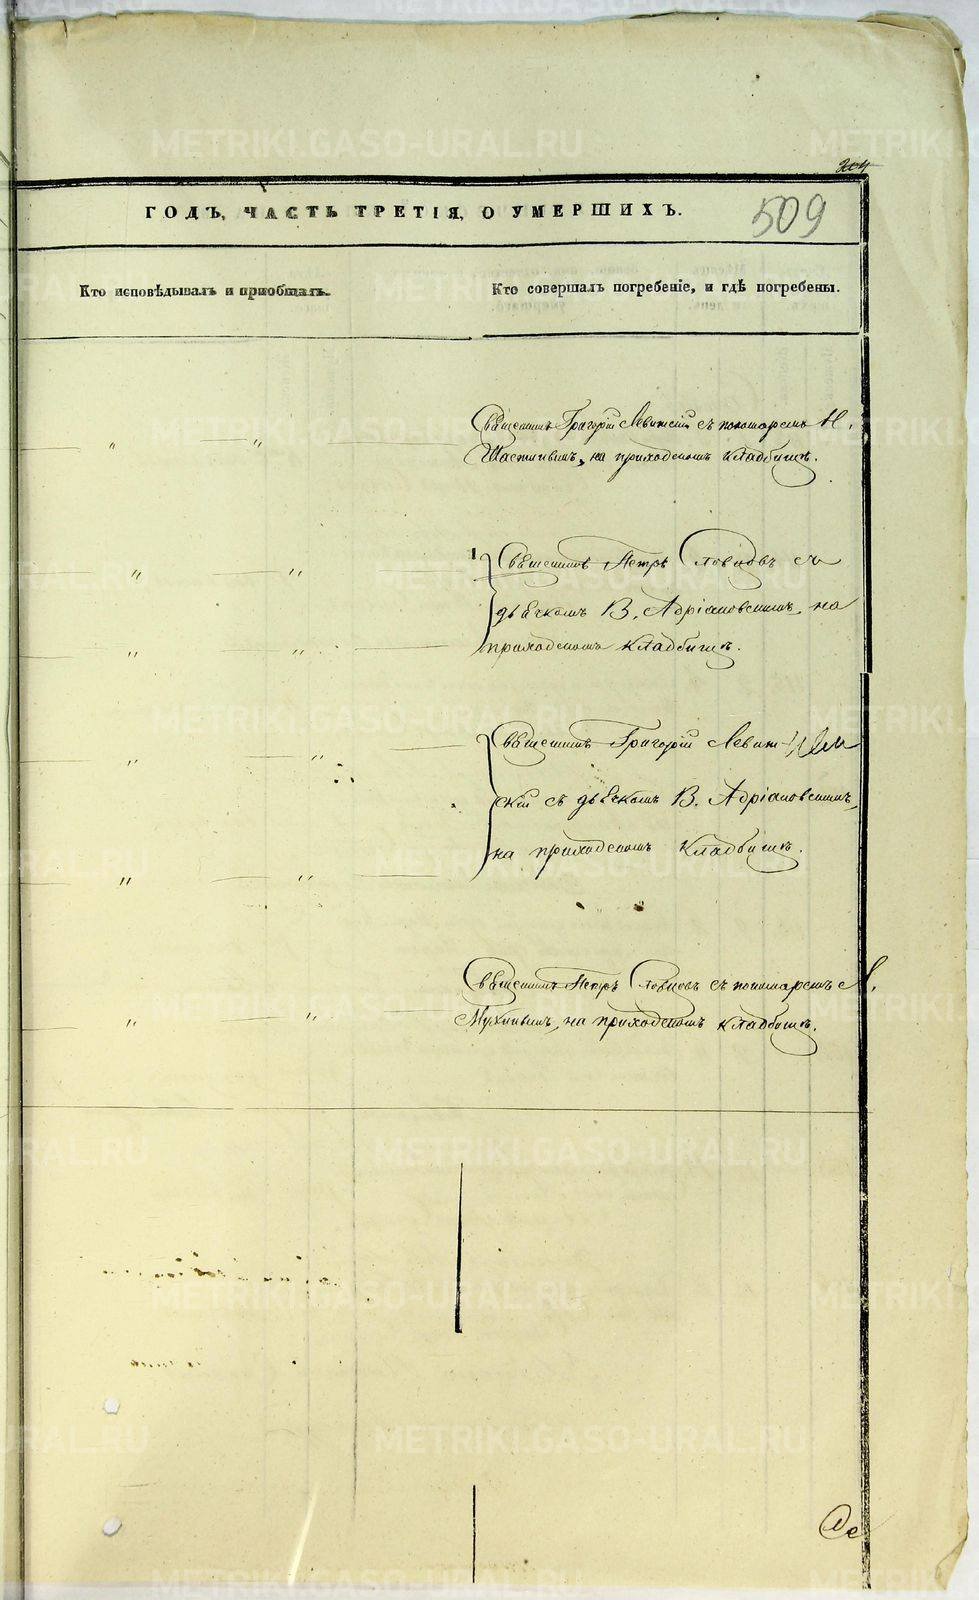 METRIKI.GASO-URAL.RU
509
ГОДЪ, ЧАСТЬ ТРЕТІЯ, О УМЕРШИХЪ.
Кто исповѣдывалъ и пріобщалъ.
Кто совершалъ погребеніе, и гдѣ погребены.
Священникъ Григорій Левитскій съ пономаремъ Н.
" "
Щастливымъ, на приходскомъ кладбищѣ.
Священникъ Петръ Словцовъ съ
" "
дьячкомъ В. Адріановскимъ, на
приходскомъ кладбищѣ.
" "
Священникъ Григорій Левит-
" "
скій съ дьячкомъ В. Адріановскимъ,
на приходскомъ кладбищѣ.
" "
Священникъ Петръ Словцовъ съ пономаремъ
" "
на приходскомъ кладбищѣ.